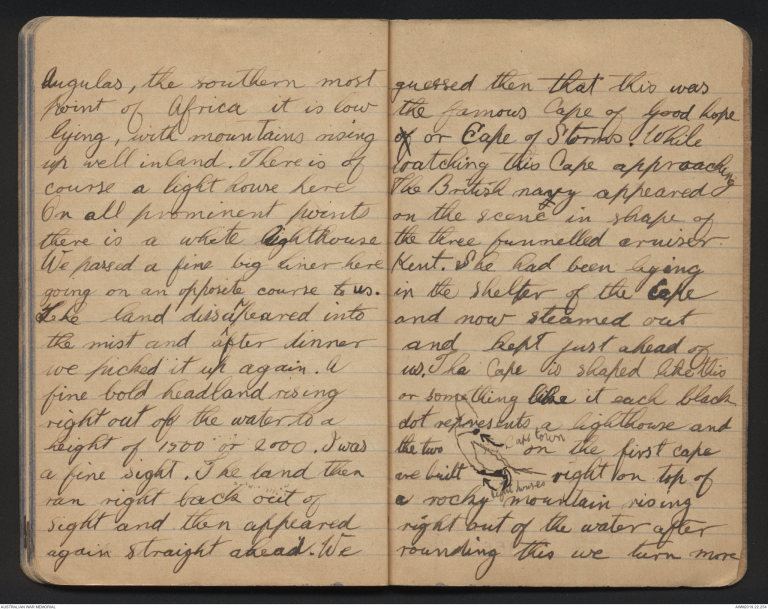 Augulas, the southern most
point of Africa it is low
lying, with mountains rising
up well inland. There is of
course a light house here
On all prominent points
there is a white lighthouse
We passed a fine big liner here
going on an opposite course to us.
The land dissapeared into
the mist and after dinner
we picked it up again. A
fine bold headland rising
right out off the water to a
height of 1500 or 2000. I was
a fine sight. The land then
ran right back out of
sight and then appeared
again straight ahead. We
guessed then that this was
the famous Cape of Good hope
or Cape of Storms. While
watching this Cape approaching
The British navy appeared
on the scene in shape of
the three funnelled cruiser
Kent. She had been lying
in the shelter of the Cape
and now steamed out
and kept just ahead of
us. The Cape is shaped like this
or something like it each black
dot represents a lighthouse and
the two on the first cape
Cape Town
are built right on top of
light houses
a rocky mountain rising
right out of the water after
rounding this we turn more
AUSTRALIAN WAR MEMORIAL